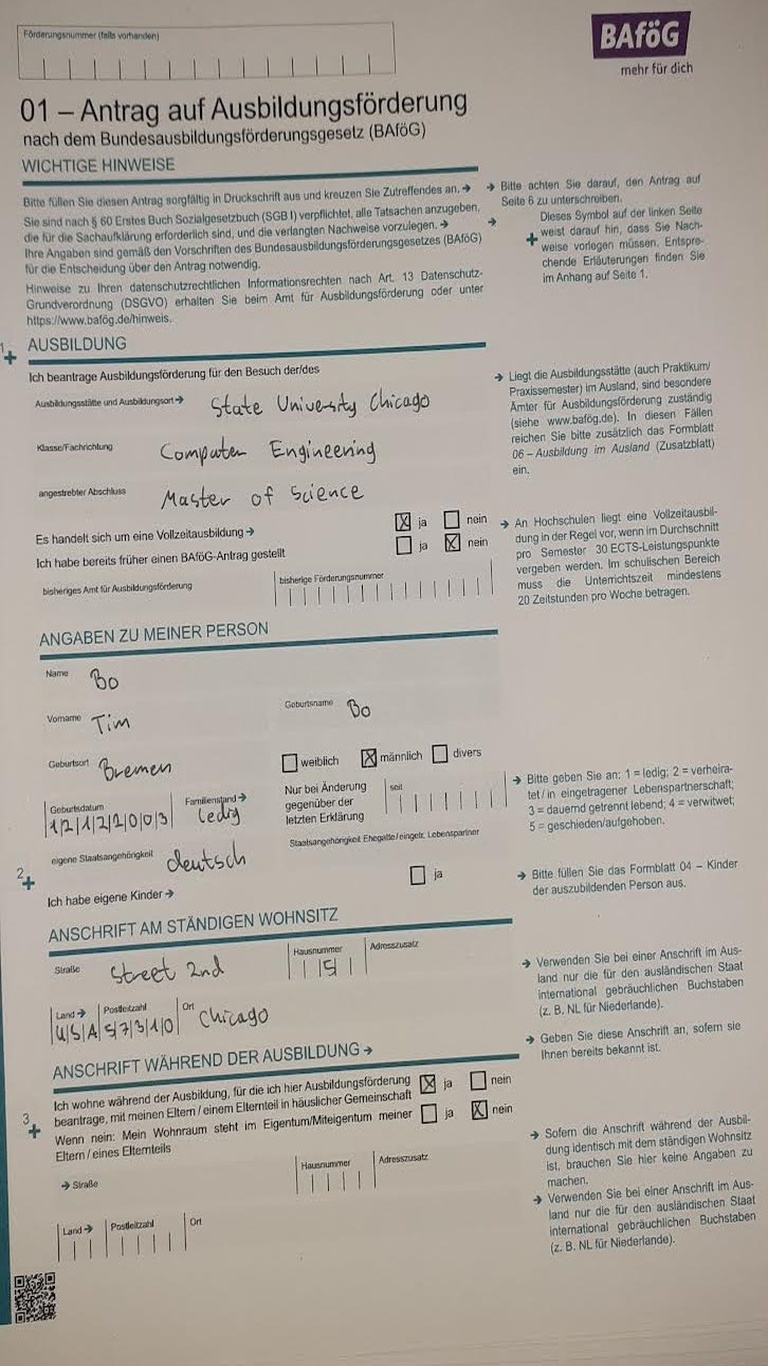 Förderungsnummer (falls vorhanden)
BAföG
mehr für dich
01 – Antrag auf Ausbildungsförderung
nach dem Bundesausbildungsförderungsgesetz (BAföG)
WICHTIGE HINWEISE
Bitte füllen Sie diesen Antrag sorgfältig in Druckschrift aus und kreuzen Sie Zutreffendes an. →
Sie sind nach § 60 Erstes Buch Sozialgesetzbuch (SGB I) verpflichtet, alle Tatsachen anzugeben,
die für die Sachaufklärung erforderlich sind, und die verlangten Nachweise vorzulegen. →
Ihre Angaben sind gemäß den Vorschriften des Bundesausbildungsförderungsgesetzes (BAföG)
für die Entscheidung über den Antrag notwendig.
Hinweise zu Ihren datenschutzrechtlichen Informationsrechten nach Art. 13 Datenschutz-
Grundverordnung (DSGVO) erhalten Sie beim Amt für Ausbildungsförderung oder unter
https://www.bafög.de/hinweis.
→ Bitte achten Sie darauf, den Antrag auf
Seite 6 zu unterschreiben.
→ Dieses Symbol auf der linken Seite
+ weist darauf hin, dass Sie Nach-
weise vorlegen müssen. Entspre-
chende Erläuterungen finden Sie
im Anhang auf Seite 1.
1
+ AUSBILDUNG
Ich beantrage Ausbildungsförderung für den Besuch der/des
Ausbildungsstätte und Ausbildungsort → State University Chicago
Klasse/Fachrichtung Computer Engineering
angestrebter Abschluss Master of Science
Es handelt sich um eine Vollzeitausbildung → X ja nein
Ich habe bereits früher einen BAföG-Antrag gestellt ja X nein
bisheriges Amt für Ausbildungsförderung bisherige Förderungsnummer
→ Liegt die Ausbildungsstätte (auch Praktikum/
Praxissemester) im Ausland, sind besondere
Ämter für Ausbildungsförderung zuständig
(siehe www.bafög.de). In diesen Fällen
reichen Sie bitte zusätzlich das Formblatt
06 – Ausbildung im Ausland (Zusatzblatt)
ein.
→ An Hochschulen liegt eine Vollzeitausbil-
dung in der Regel vor, wenn im Durchschnitt
pro Semester 30 ECTS-Leistungspunkte
vergeben werden. Im schulischen Bereich
muss die Unterrichtszeit mindestens
20 Zeitstunden pro Woche betragen.
ANGABEN ZU MEINER PERSON
Name Bo
Vorname Tim Geburtsname Bo
Geburtsort Bremen weiblich X männlich divers
Geburtsdatum 12122003 Familienstand → ledig
Nur bei Änderung
gegenüber der
letzten Erklärung
seit
eigene Staatsangehörigkeit deutsch Staatsangehörigkeit Ehegatte/eingetr. Lebenspartner
2
+ Ich habe eigene Kinder → ja
→ Bitte geben Sie an: 1 = ledig; 2 = verheira-
tet / in eingetragener Lebenspartnerschaft;
3 = dauernd getrennt lebend; 4 = verwitwet;
5 = geschieden/aufgehoben.
→ Bitte füllen Sie das Formblatt 04 – Kinder
der auszubildenden Person aus.
ANSCHRIFT AM STÄNDIGEN WOHNSITZ
Straße Street 2nd Hausnummer 5 Adresszusatz
Land → USA Postleitzahl 57310 Ort Chicago
→ Verwenden Sie bei einer Anschrift im Aus-
land nur die für den ausländischen Staat
international gebräuchlichen Buchstaben
(z. B. NL für Niederlande).
→ Geben Sie diese Anschrift an, sofern sie
Ihnen bereits bekannt ist.
ANSCHRIFT WÄHREND DER AUSBILDUNG →
3
+ Ich wohne während der Ausbildung, für die ich hier Ausbildungsförderung
beantrage, mit meinen Eltern / einem Elternteil in häuslicher Gemeinschaft X ja nein
Wenn nein: Mein Wohnraum steht im Eigentum/Miteigentum meiner
Eltern / eines Elternteils ja X nein
→ Straße Hausnummer Adresszusatz
Land → Postleitzahl Ort
→ Sofern die Anschrift während der Ausbil-
dung identisch mit dem ständigen Wohnsitz
ist, brauchen Sie hier keine Angaben zu
machen.
→ Verwenden Sie bei einer Anschrift im Aus-
land nur die für den ausländischen Staat
international gebräuchlichen Buchstaben
(z. B. NL für Niederlande).